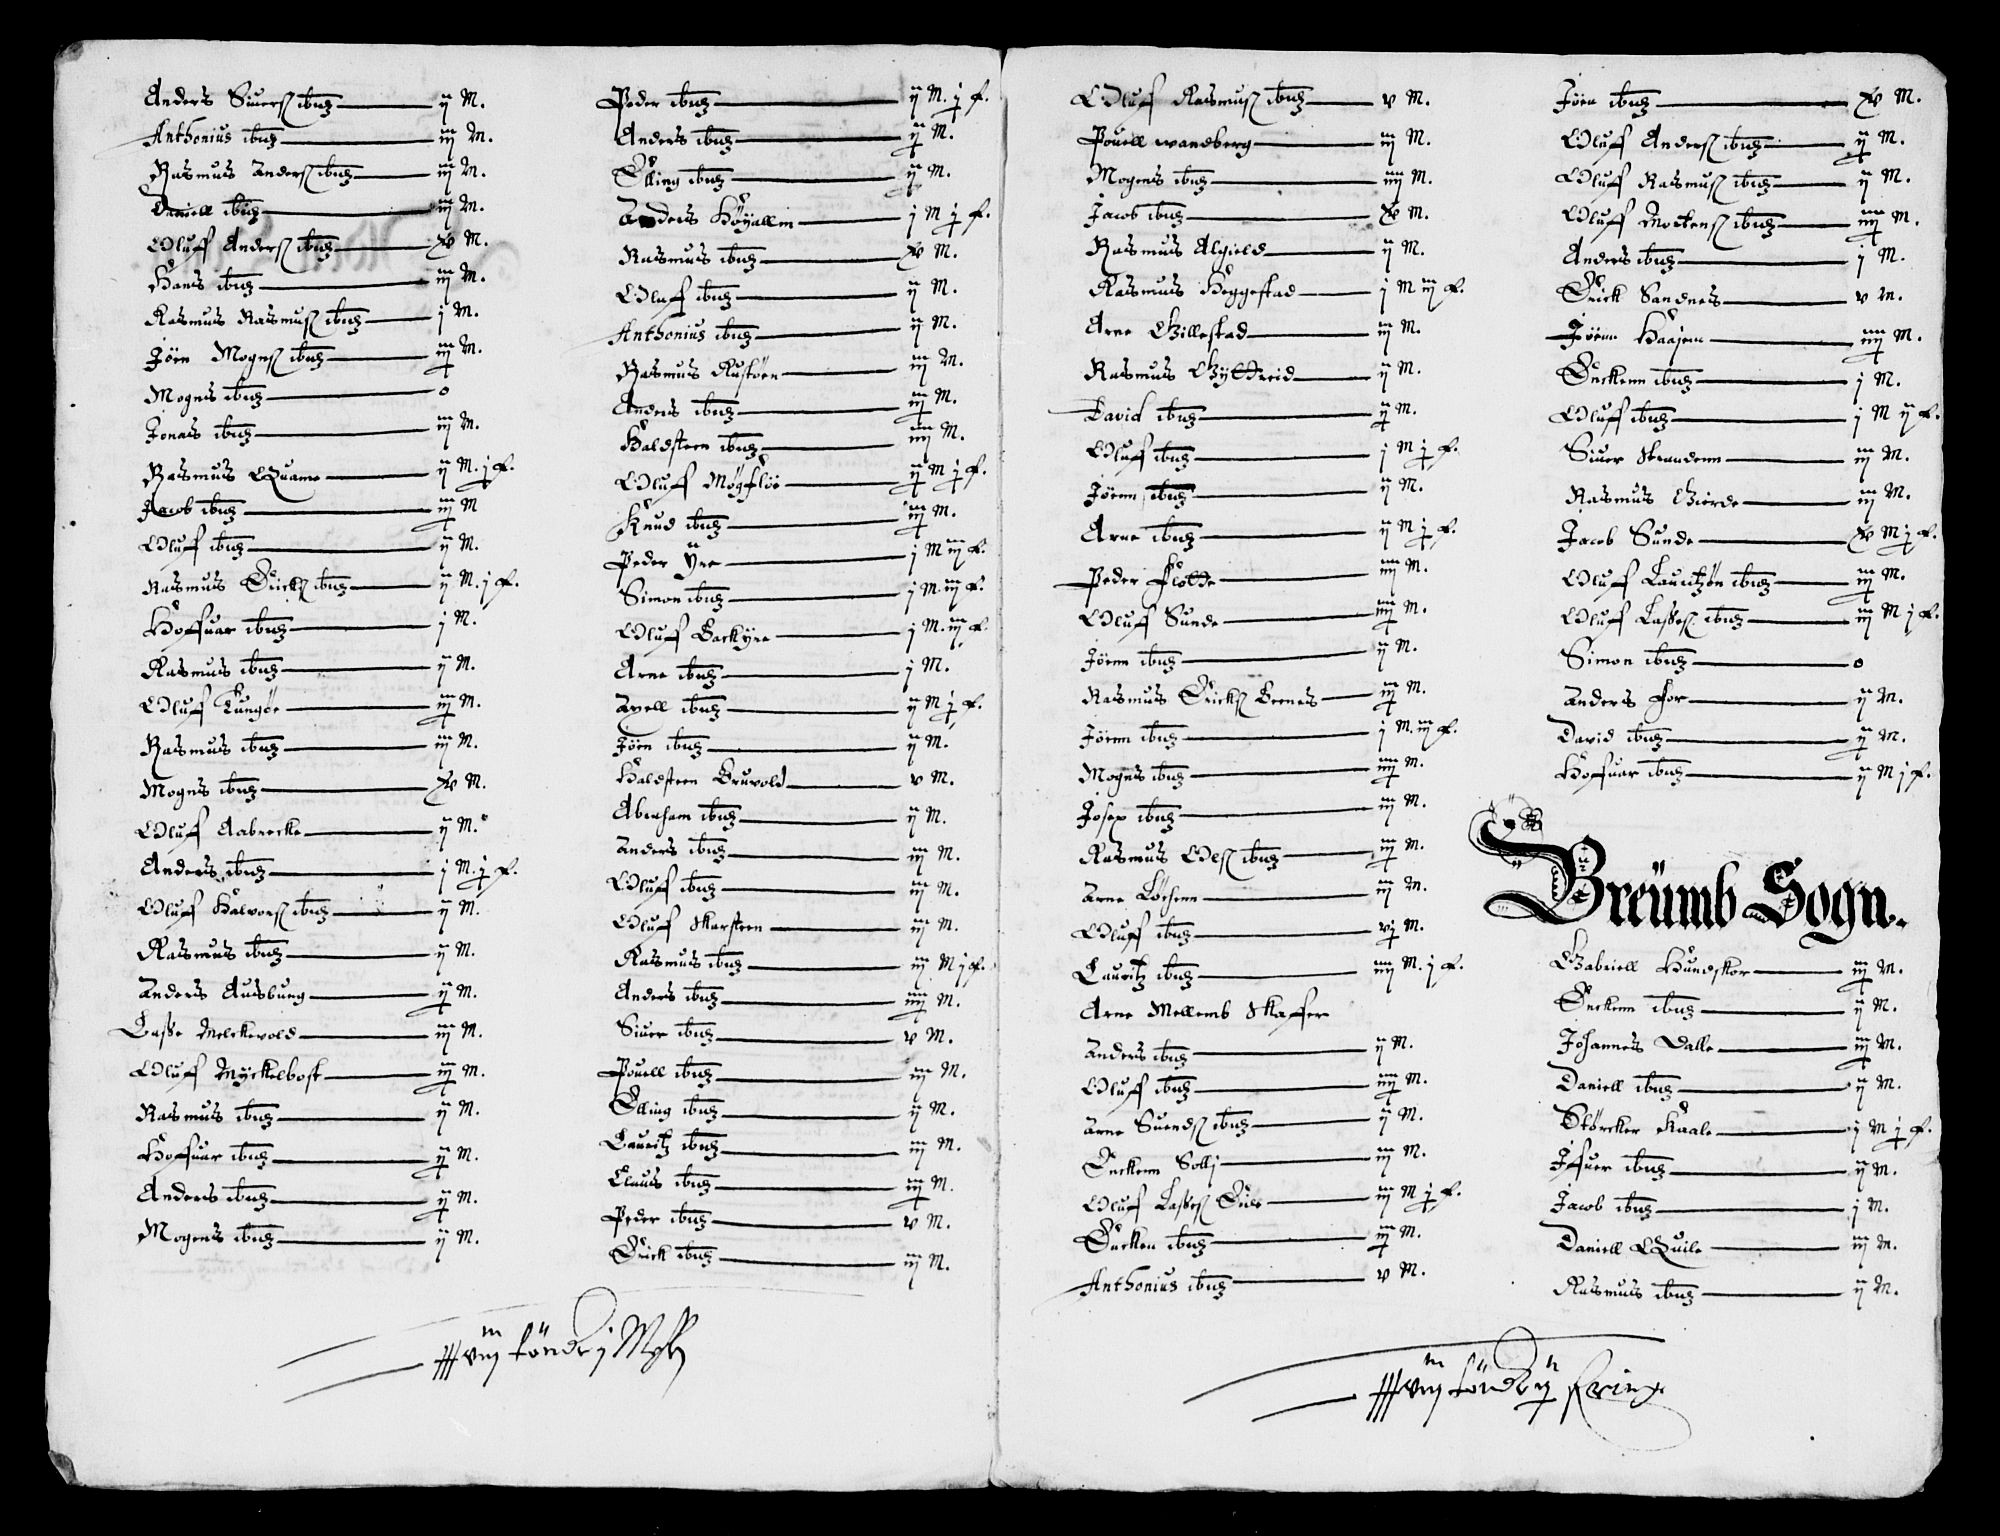 Anders Siuerß ibidz ij M.
Anthonius ibidz iij M.
Rasmus Anderß ibidz iij M.
Daniell ibidz iij M.
Oluff Anderß ibidz xv M.
Hans ibidz iij M.
Rasmus Rasmuß ibidz j M.
Jöen Mognß ibidz iij M.
Mogns ibidz o
Jonas ibidz iij M.
Rasmus Quame ij M. j F.
Jacob ibidz iij M
Oluff ibidz ij M.
Rasmus Erickß ibidz ij M. j F.
Hoffuar ibidz j M.
Rasmus ibidz ij M.
Oluff Lungöe iij M.
Rasmus ibidz iij M.
Mogns ibidz xv M.
Oluff Aabrecke ij M.
Anders ibidz j M. j F.
Oluff Halvorß ibidz ij M.
Rasmus ibidz ij M.
Anders Ausbung ij M.
Lasse Melckevold iij M.
Oluff Myckelbost iij M.
Rasmus ibidz ij M.
Hoffuar ibidz ij M.
Anders ibidz ij M.
Mogens ibidz ij M.
Peder ibidz ij M. j F.
Anders ibidz ij M.
Elling ibidz ij M.
Anders Höyallm j M j F.
Rasmus ibidz xv M.
Oluff ibidz ij M.
Anthonius ibidz ij M.
Rasmus Rustöen iij M.
Anders ibidz iij M.
Haldsteen ibidz iiij M.
Oluff Mögflöe ij M j F.
Knud ibidz iij M.
Peder Yre j M iij F.
Simon ibidz j M. iij F.
Oluff Backyre j M. iij F.
Arne ibidz j M.
Axell ibidz ij M j F.
Jöen ibidz ij M.
Haldsteen Bruvold v M.
Abraham ibidz ij M.
Anders ibidz iij M.
Oluff ibidz iij M.
Oluff Skarsteen iij M.
Rasmus ibidz iij M j F.
Anders ibidz iiij M.
Siuer ibidz v M.
Pouell ibidz iij M.
Elling ibidz ij M.
Lauritz ibidz iij M.
Claus ibidz iij M.
Peder ibidz v M.
Erick ibidz iij M.
viij tönde j
Oluff Rasmuß ibidz v M.
Pouell wandberg iij M.
Mogens ibidz iiij M.
Jacob ibidz xv M.
Rasmus Algield ij M.
Rasmus Heggestad j M iij F.
Arne Gillestad iij M.
Rasmus Gyttreid ij M.
David ibidz ij M.
Oluff ibidz j M j F.
Jöenn ibidz ij M.
Arne ibidz ij M j F.
Peder Flotte iiij M.
Oluff Sunde iiij M.
Jöenn ibidz ij M.
Rasmus Erickß Beenes iij M.
Jöenn ibidz j M. iij F.
Mogns ibidz iiij M.
Josep ibidz iij M.
Rasmus Oleß ibidz iij M.
Arne Löesenn iij M.
Oluff ibidz vj M.
Lauritz ibidz iiij M. j F.
Arne Mellemb Skaffer
Anders ibidz ij M.
Oluff ibidz iiij M.
Arne Suendß ibidz ij M.
Enckenn Sollj iij M.
Oluff Lasseß Eide iij M j F.
Encken ibidz iij M.
Anthonius ibidz v M.
Jöen ibidz xv M.
Oluff Anderß ibidz ij M.
Oluff Rasmuß ibidz ij M.
Oluff Mortenß ibidz iiij M.
Anders ibidz j M.
Erick Sandnes v M.
Jöenn Haajem iiij M.
Enckenn ibidz j M.
Oluff ibidz j M ij F.
Siuer Strandenn iij M.
Rasmus Gierde iij M.
Jacob Sunde xv M j F.
Oluff Lauritzön ibidz iij M.
Oluff Lasseß ibidz iij M j F.
Simon ibidz o
Anders For ij M.
David ibidz ij M.
Hoffuar ibidz ij M j F.
Breümb Sogn.
Gabriell Hundskor iij M.
Enckenn ibidz ij M.
Johannes Dalle iij M.
Daniell ibidz ij M.
Störcker Kaale j M j F.
Iffuer ibidz ij M.
Jacob ibidz j M.
Daniell Quile iij M.
Rasmus ibidz ij M.
viij tönde ij